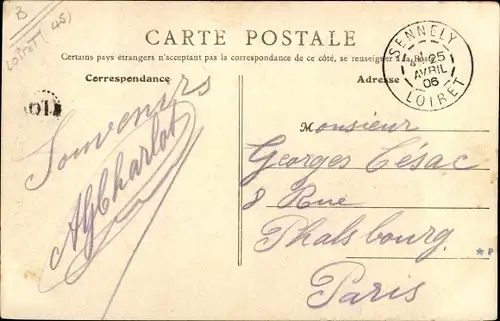 B
Loiret (45)
CARTE POSTALE
Certains pays étrangers n'acceptant pas la correspondance de ce côté, se renseigner à la Poste
Correspondance
Adresse
SENNELY
25
AVRIL
06
LOIRET
Souvenirs
AG Charlot
Monsieur
Georges Césac
8 Rue
Phalsbourg
Paris